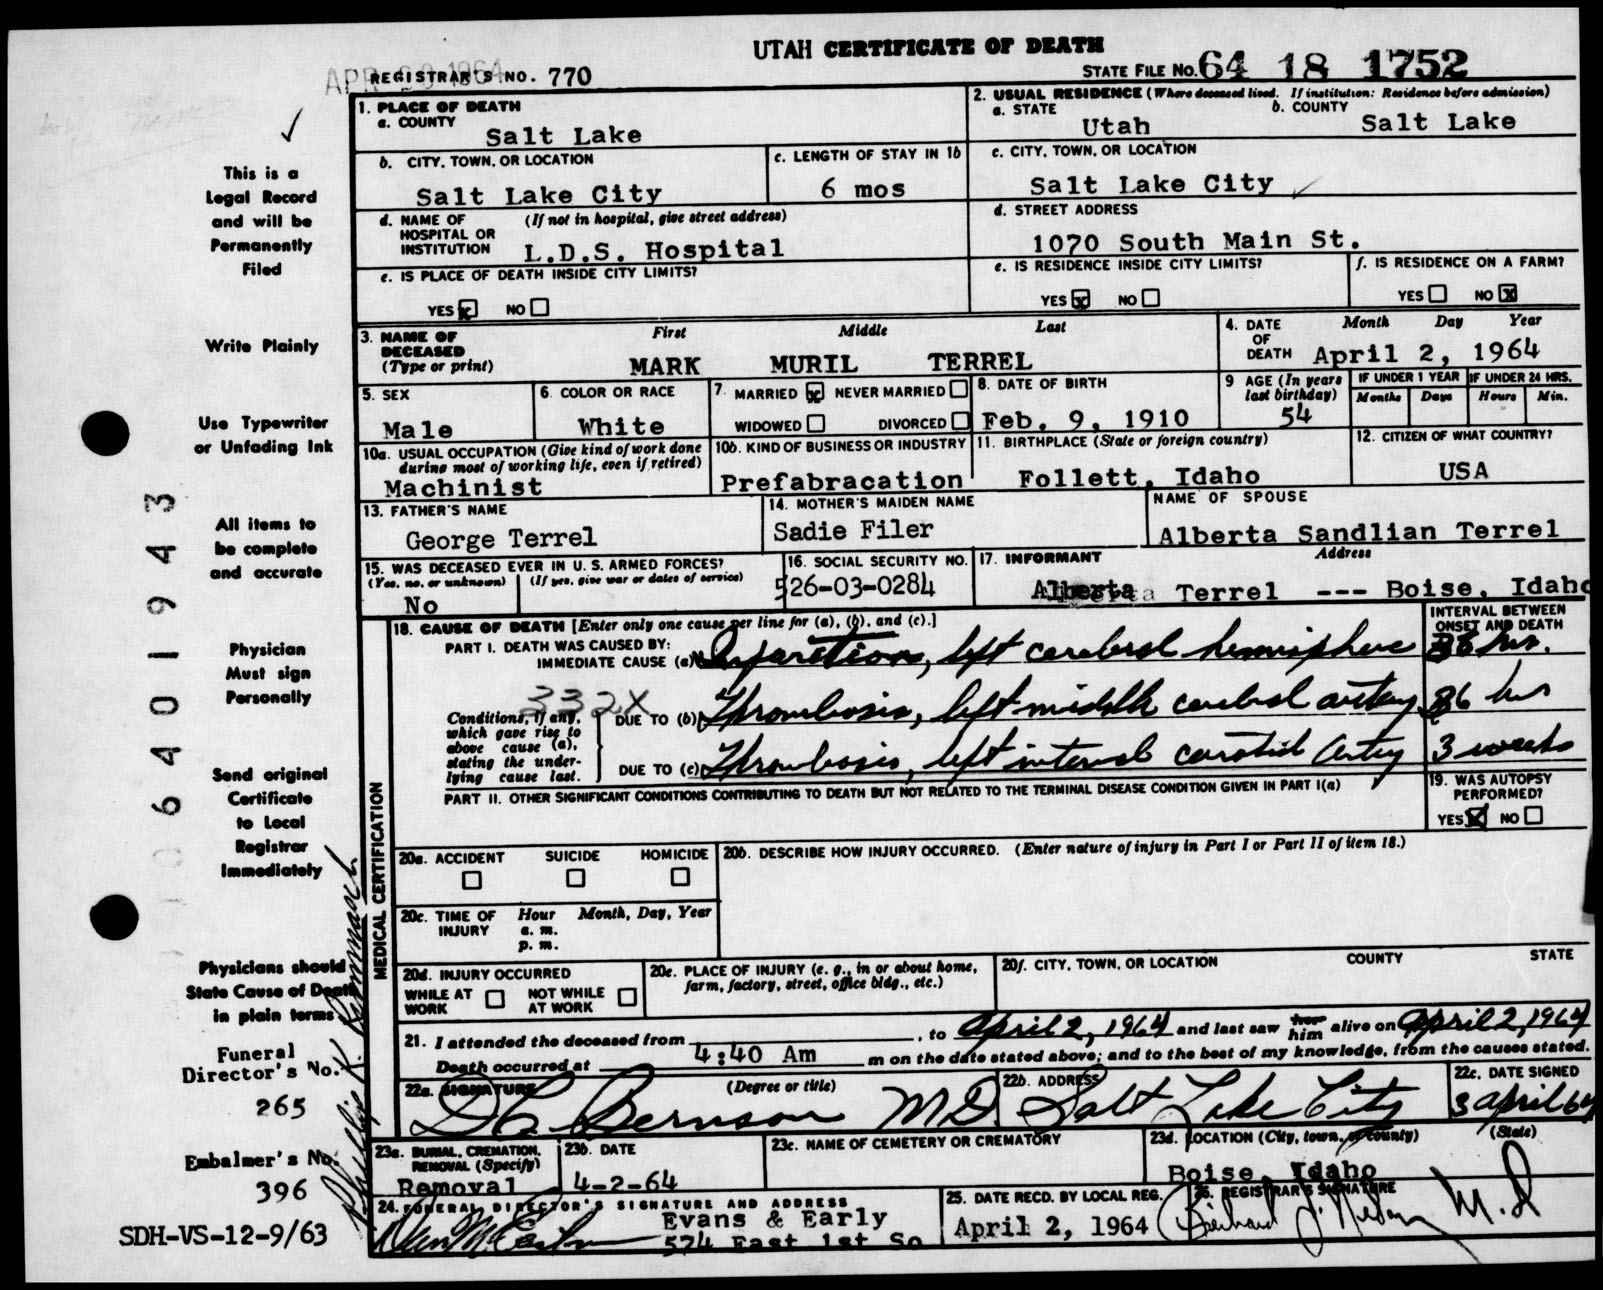 UTAH CERTIFICATE OF DEATH
REGISTRAR'S NO. 770
STATE FILE NO. 64 18 1752
1. PLACE OF DEATH
a. COUNTY
Salt Lake
2. USUAL RESIDENCE (Where deceased lived. If institution: Residence before admission)
a. STATE
Utah
b. COUNTY
Salt Lake
b. CITY, TOWN, OR LOCATION
Salt Lake City
c. LENGTH OF STAY IN 1b
6 mos
c. CITY, TOWN, OR LOCATION
Salt Lake City
d. NAME OF HOSPITAL OR INSTITUTION
(If not in hospital, give street address)
L.D.S. Hospital
d. STREET ADDRESS
1070 South Main St.
e. IS PLACE OF DEATH INSIDE CITY LIMITS?
YES x NO
e. IS RESIDENCE INSIDE CITY LIMITS?
YES x NO
f. IS RESIDENCE ON A FARM?
YES NO x
3. NAME OF DECEASED
(Type or print)
First Middle Last
MARK MURIL TERREL
4. DATE OF DEATH
Month Day Year
April 2, 1964
5. SEX
Male
6. COLOR OR RACE
White
7. MARRIED x NEVER MARRIED
WIDOWED DIVORCED
8. DATE OF BIRTH
Feb. 9, 1910
9 AGE (In years last birthday)
54
IF UNDER 1 YEAR
Months Days
IF UNDER 24 HRS.
Hours Min.
10a. USUAL OCCUPATION (Give kind of work done during most of working life, even if retired)
Machinist
10b. KIND OF BUSINESS OR INDUSTRY
Prefabracation
11. BIRTHPLACE (State or foreign country)
Follett, Idaho
12. CITIZEN OF WHAT COUNTRY?
USA
13. FATHER'S NAME
George Terrel
14. MOTHER'S MAIDEN NAME
Sadie Filer
NAME OF SPOUSE
Alberta Sandlian Terrel
15. WAS DECEASED EVER IN U. S. ARMED FORCES?
(Yes, no, or unknown) (If yes, give war or dates of service)
No
16. SOCIAL SECURITY NO.
526-03-0284
17. INFORMANT
Address
Alberta Terrel --- Boise, Idaho
18. CAUSE OF DEATH [Enter only one cause per line for (a), (b), and (c).]
INTERVAL BETWEEN ONSET AND DEATH
PART I. DEATH WAS CAUSED BY:
IMMEDIATE CAUSE (a) Infarction, left cerebral hemisphere 36 hrs.
332X
Conditions, if any, which gave rise to above cause (a), stating the underlying cause last.
DUE TO (b) Thrombosis, left middle cerebral artery 36 hrs
DUE TO (c) Thrombosis, left internal carotid artery 3 weeks
PART II. OTHER SIGNIFICANT CONDITIONS CONTRIBUTING TO DEATH BUT NOT RELATED TO THE TERMINAL DISEASE CONDITION GIVEN IN PART I(a)
19. WAS AUTOPSY PERFORMED?
YES X NO
MEDICAL CERTIFICATION
20a. ACCIDENT SUICIDE HOMICIDE
20b. DESCRIBE HOW INJURY OCCURRED. (Enter nature of injury in Part I or Part II of item 18.)
20c. TIME OF INJURY
Hour Month, Day, Year
a. m.
p. m.
20d. INJURY OCCURRED
WHILE AT WORK NOT WHILE AT WORK
20e. PLACE OF INJURY (e. g., in or about home, farm, factory, street, office bldg., etc.)
20f. CITY, TOWN, OR LOCATION COUNTY STATE
21. I attended the deceased from , to April 2, 1964 and last saw her him alive on April 2, 1964
Death occurred at 4:40 Am m on the date stated above; and to the best of my knowledge, from the causes stated.
22a. SIGNATURE
(Degree or title)
Bernson MD.
22b. ADDRESS
Salt Lake City
22c. DATE SIGNED
3 April 64
23a. BURIAL, CREMATION, REMOVAL (Specify)
Removal
23b. DATE
4-2-64
23c. NAME OF CEMETERY OR CREMATORY
23d. LOCATION (City, town, or county) (State)
Boise, Idaho
24. FUNERAL DIRECTOR'S SIGNATURE AND ADDRESS
Evans & Early
574 East 1st So
25. DATE RECD. BY LOCAL REG.
April 2, 1964
26. REGISTRAR'S SIGNATURE
M.D
This is a
Legal Record
and will be
Permanently
Filed
Write Plainly
Use Typewriter
or Unfading Ink
All items to
be complete
and accurate
Physician
Must sign
Personally
Send original
Certificate
to Local
Registrar
Immediately
Physicians should
State Cause of Death
in plain terms
Funeral
Director's No.
265
Embalmer's No.
396
SDH-VS-12-9/63
6401943